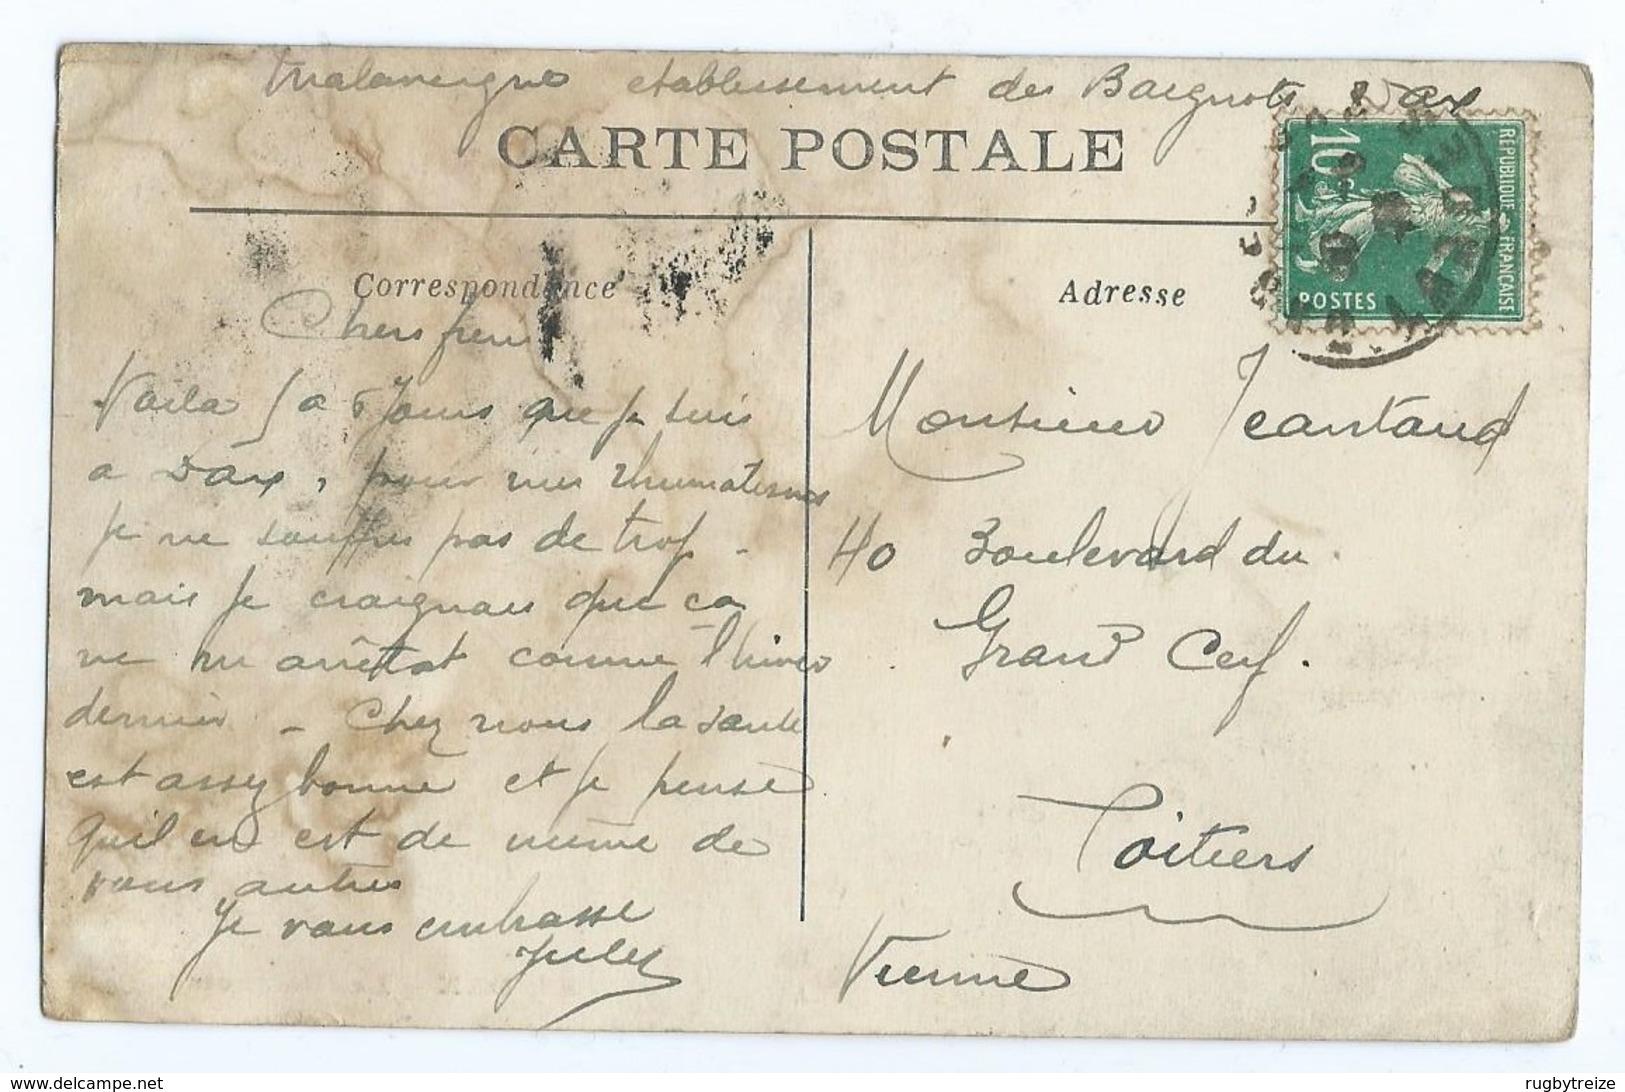 Malavergne etablissement des Baignots Dax
CARTE POSTALE
Correspondance
Chers freres
Voila 5 a 6 Jours que je suis
a Dax, pour mes rhumatismes
je ne souffre pas de trop -
mais je craignais que ca
ne m arrêtat comme l hiver
dernier - Chez nous la santé
est assez bonne et je pense
qu'il en est de même de
vous autres
Je vous embrasse
Jules
Adresse
Monsieur Jeantaud
40 Boulevard du
Grand Cerf.
Poitiers
Vienne
REPUBLIQUE FRANCAISE
10c
POSTES
LANDES
delcampe.net
rugbytreize